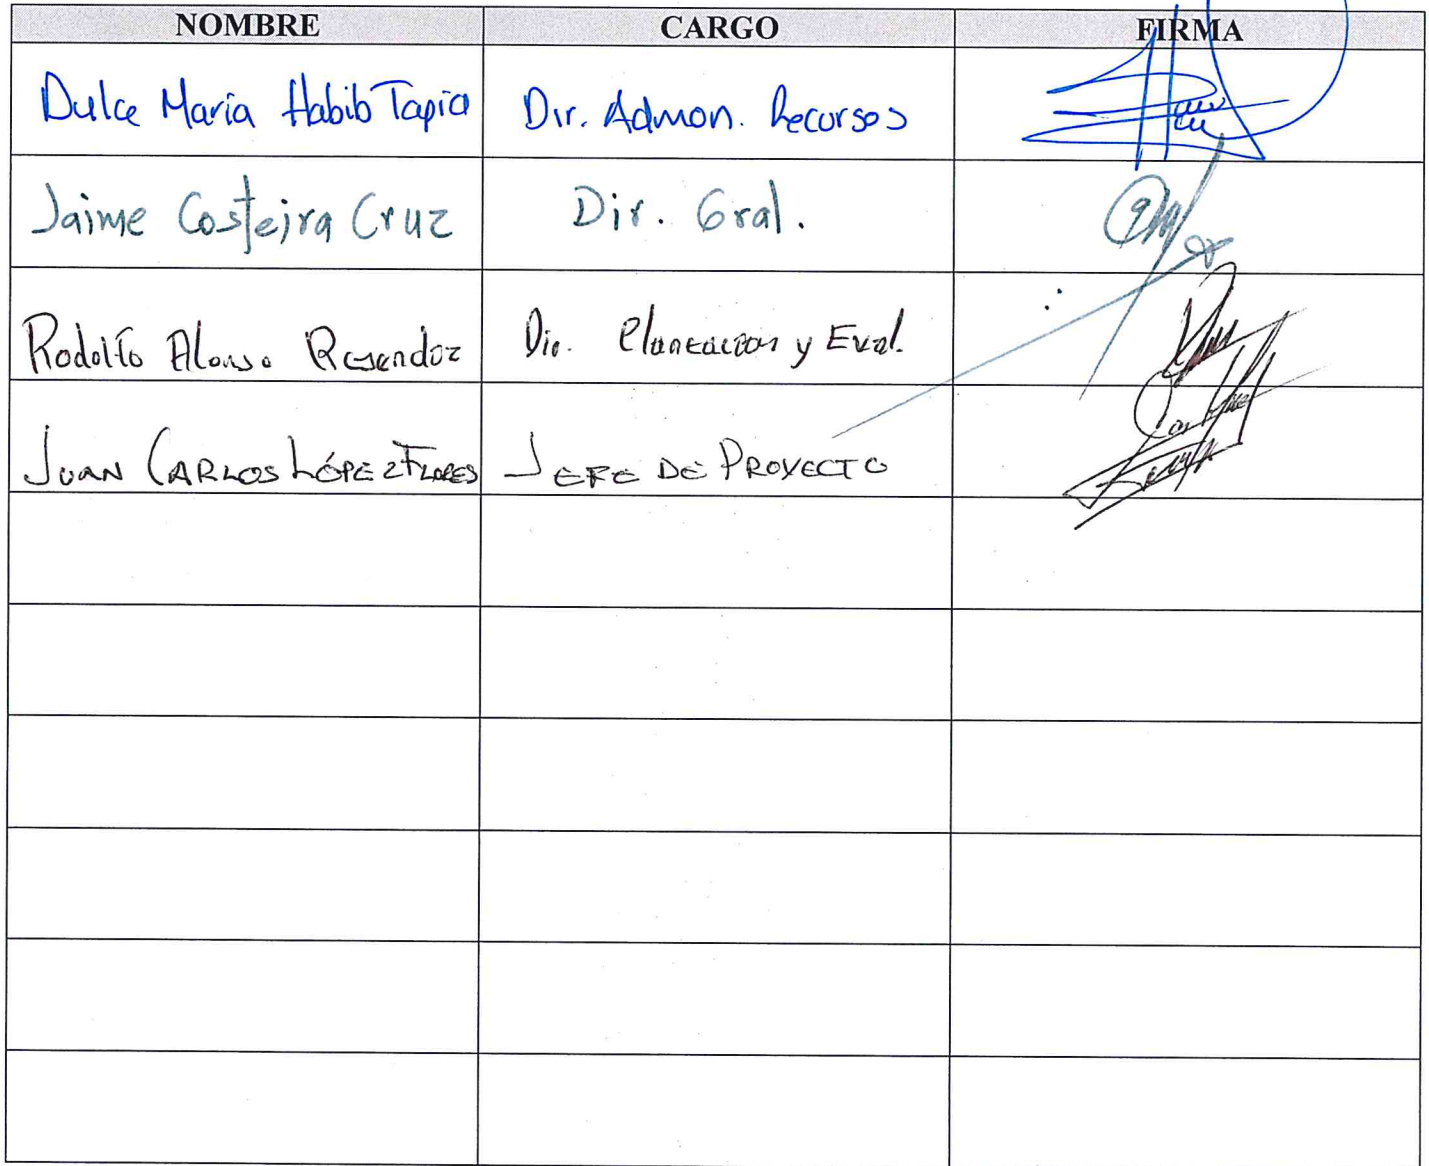 NOMBRE CARGO FIRMA
Dulce María Habib Tapia Dir. Admon. Recursos
Jaime Costeira Cruz Dir. Gral.
Rodolfo Alonso Resendiz Dir. Planeacion y Eval.
JUAN CARLOS LÓPEZ FLORES JEFE DE PROYECTO